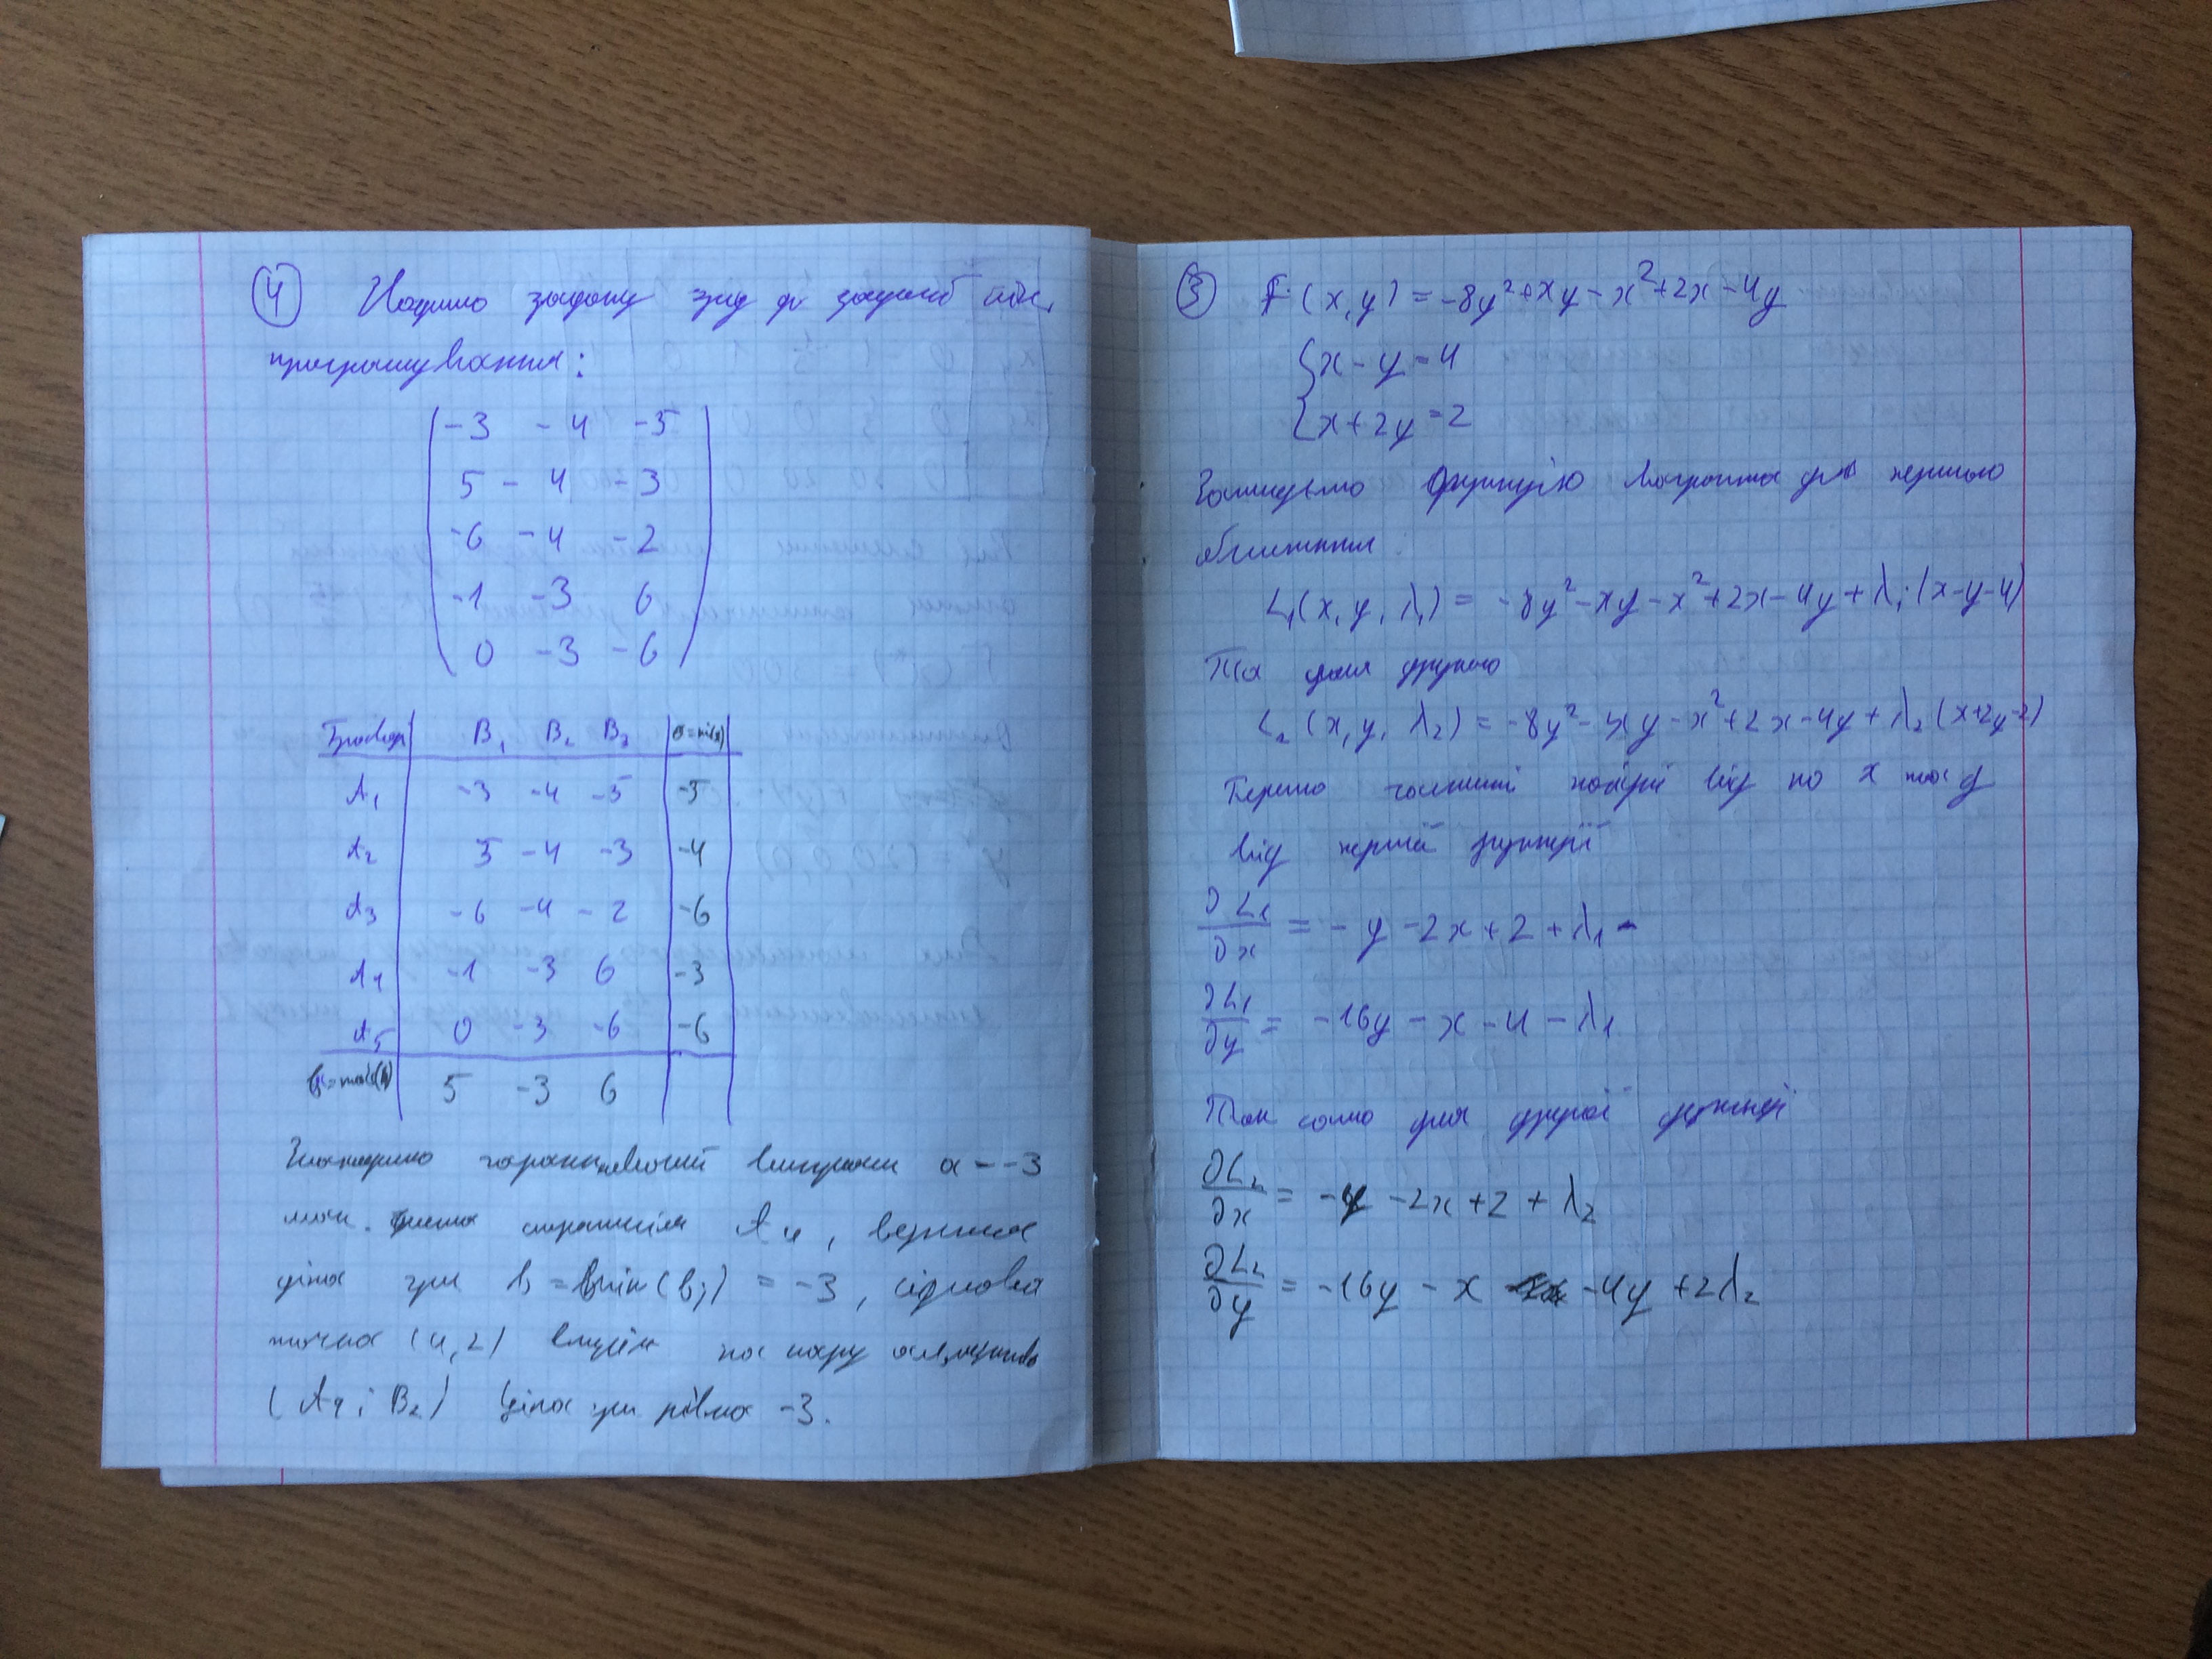 ④ задачу до задачі
програмування:
-3 -4 -5
5 -4 -3
-6 -4 -2
-1 -3 6
0 -3 -6
Гравці B₁ B₂ B₃
A₁ -3 -4 -5 -5
A₂ 5 -4 -3 -4
A₃ -6 -4 -2 -6
A₄ -1 -3 6 -3
A₅ 0 -3 -6 -6
5 -3 6
Знаходимо гарантований виграш a = -3
A₄, верхня
ціна гри b = min(bj) = -3, сідлова
точка (4,2) вказує на пару альтернатив
(A₄; B₂) Ціна гри рівна -3.
③ F(x,y) = -8y²+xy-x²+2x-4y
{x-y=4
{x+2y=2
Запишемо функцію Лагранжа для першого
обмеження:
L₁(x, y, λ₁) = -8y²-xy-x²+2x-4y+λ₁·(x-y-4)
Та для другого
L₂(x, y, λ₂) = -8y²-xy-x²+2x-4y+λ₂(x+2y-2)
Беремо частинні похідні від по x та y
від першої функції
∂L₁/∂x = -y-2x+2+λ₁
∂L₁/∂y = -16y-x-4-λ₁
Так само для другої функції
∂L₂/∂x = -y-2x+2+λ₂
∂L₂/∂y = -16y-x-4y+2λ₂